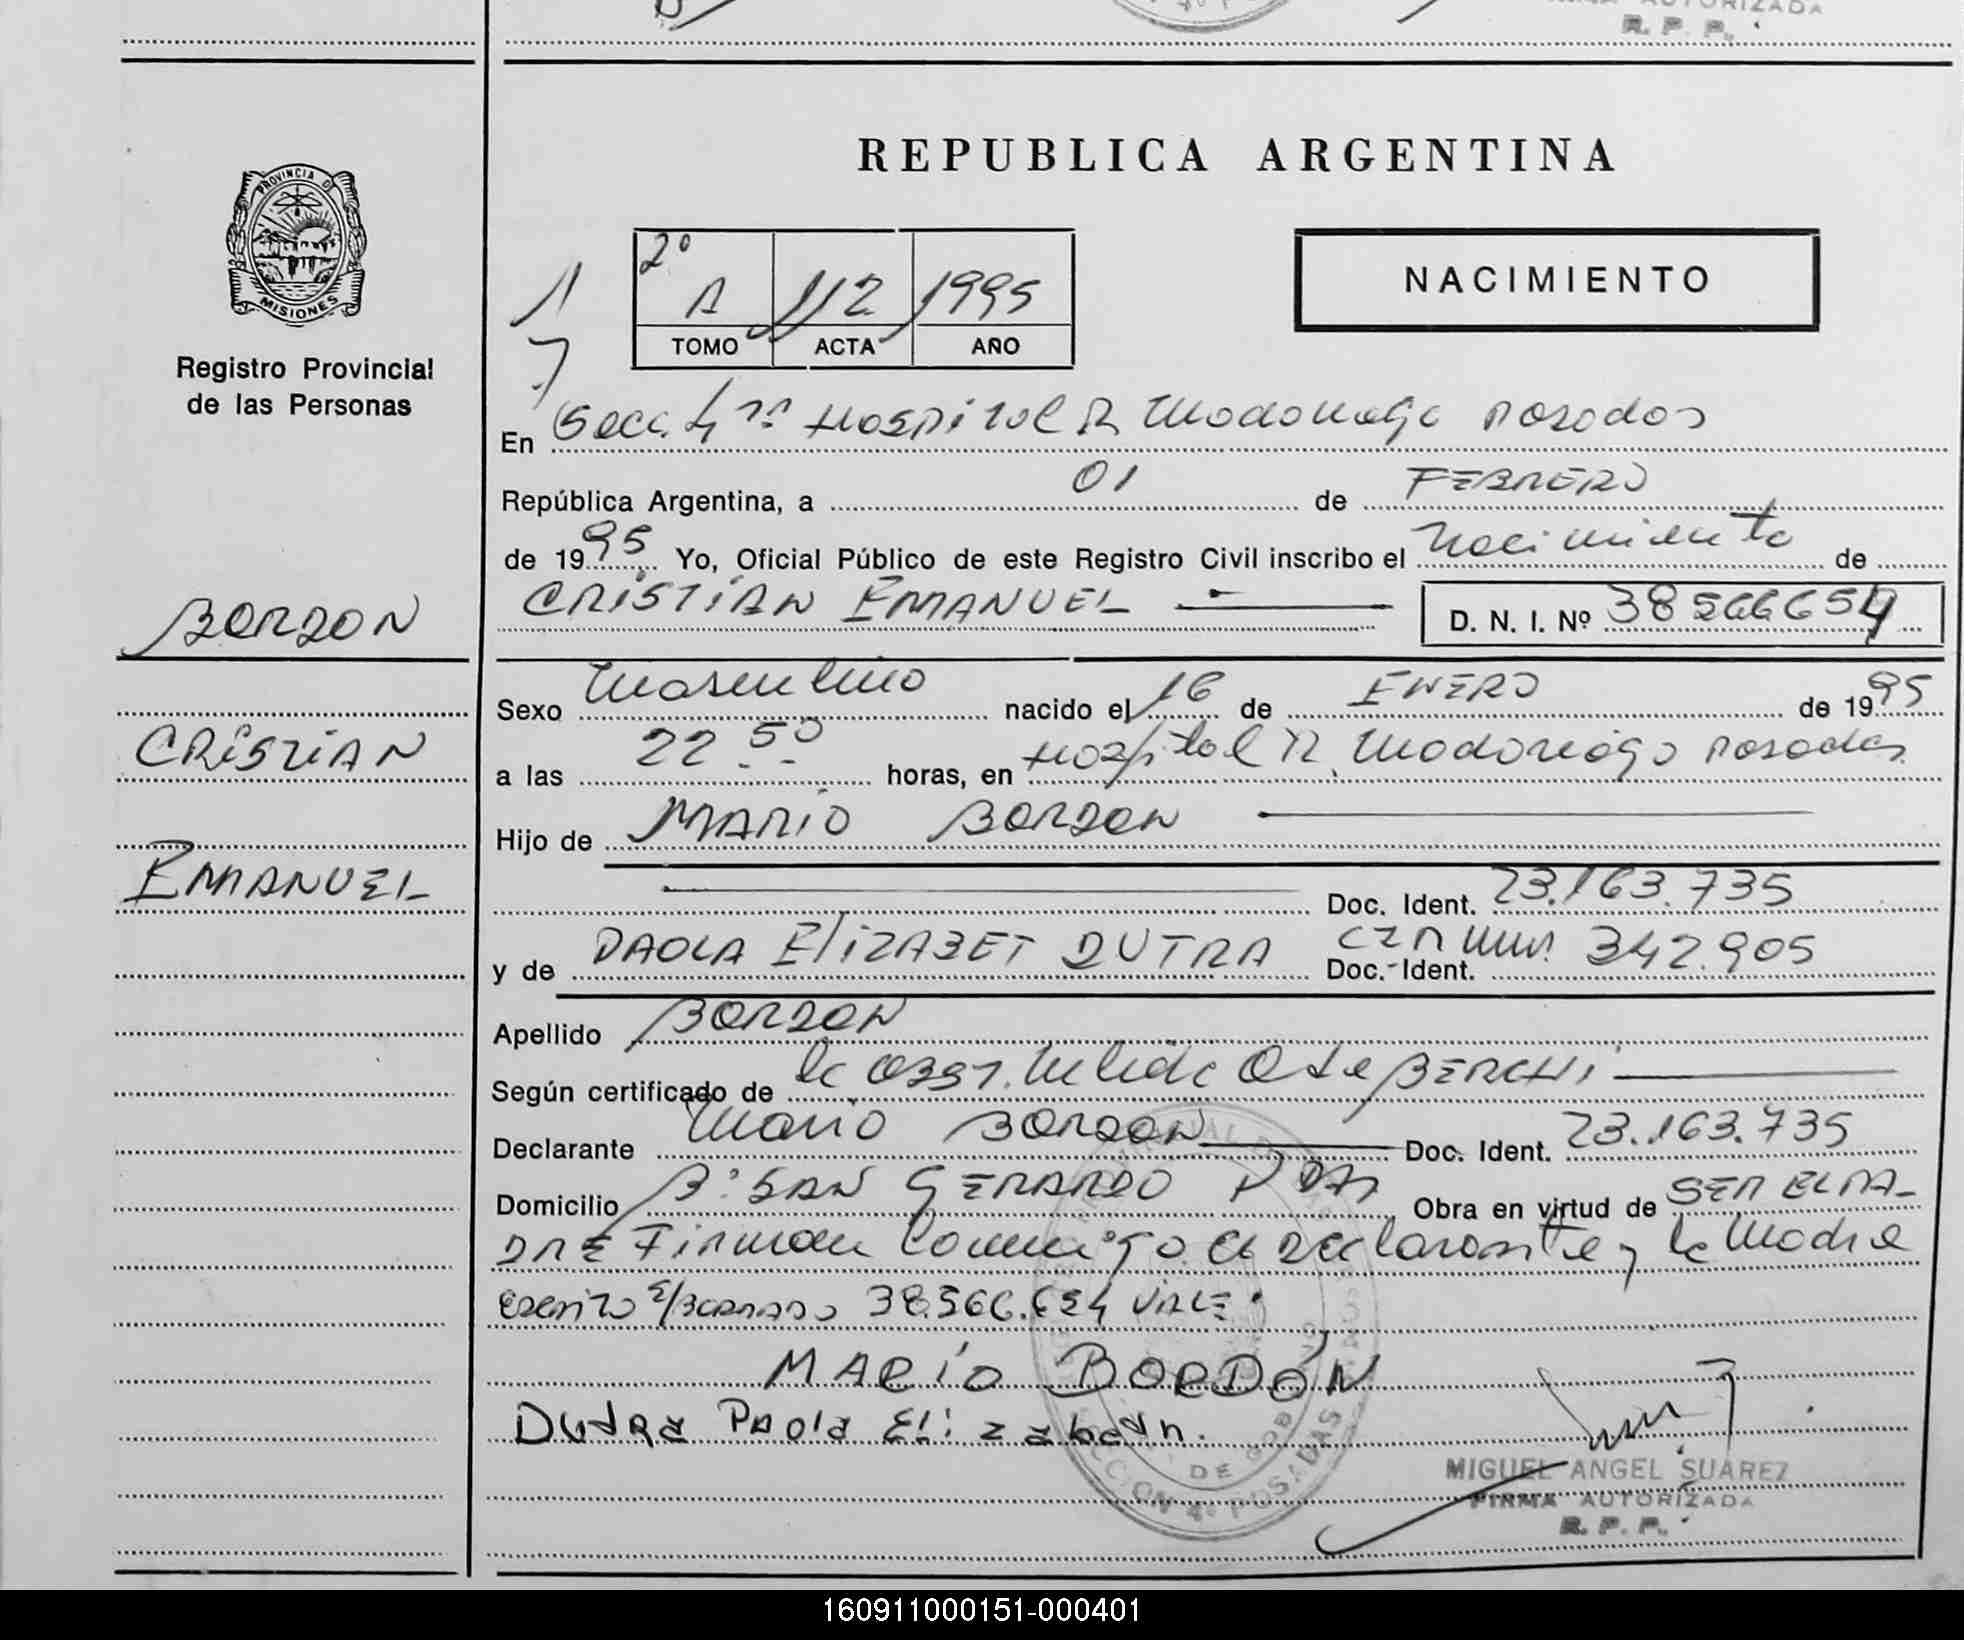 AUTORIZADA
R. P. P.
PROVINCIA DE
MISIONES
Registro Provincial
de las Personas
BORDON
CRISTIAN
EMANUEL
REPUBLICA ARGENTINA
2º
A 112 1995
TOMO ACTA AÑO
NACIMIENTO
En Secc. 4ta Hospital R. Madariaga Posadas
República Argentina, a 01 de FEBRERO
de 1995 Yo, Oficial Público de este Registro Civil inscribo el Nacimiento de
CRISTIAN EMANUEL D. N. I. Nº 38566654
Sexo Masculino nacido el 16 de ENERO de 1995
a las 22 50 horas, en Hospital R. Madariaga Posadas
Hijo de MARIO BORDON
Doc. Ident. 23.163.735
y de PAOLA ELIZABET DUTRA Doc. Ident. 342.905
Apellido BORDON
Según certificado de la Obst. BERCHI
Declarante Mario BORDON Doc. Ident. 23.163.735
Domicilio Bº SAN GERARDO PDAS Obra en virtud de SER EL PA-
DRE Firman conmigo el declarante y la Madre
escrito s/borrado 38.566.654 VALE.
MARÍO BORDÓN
Dutra Paola Elizabeth.
SECCION 4º POSADAS
MIGUEL ANGEL SUAREZ
FIRMA AUTORIZADA
R. P. P.
160911000151-000401